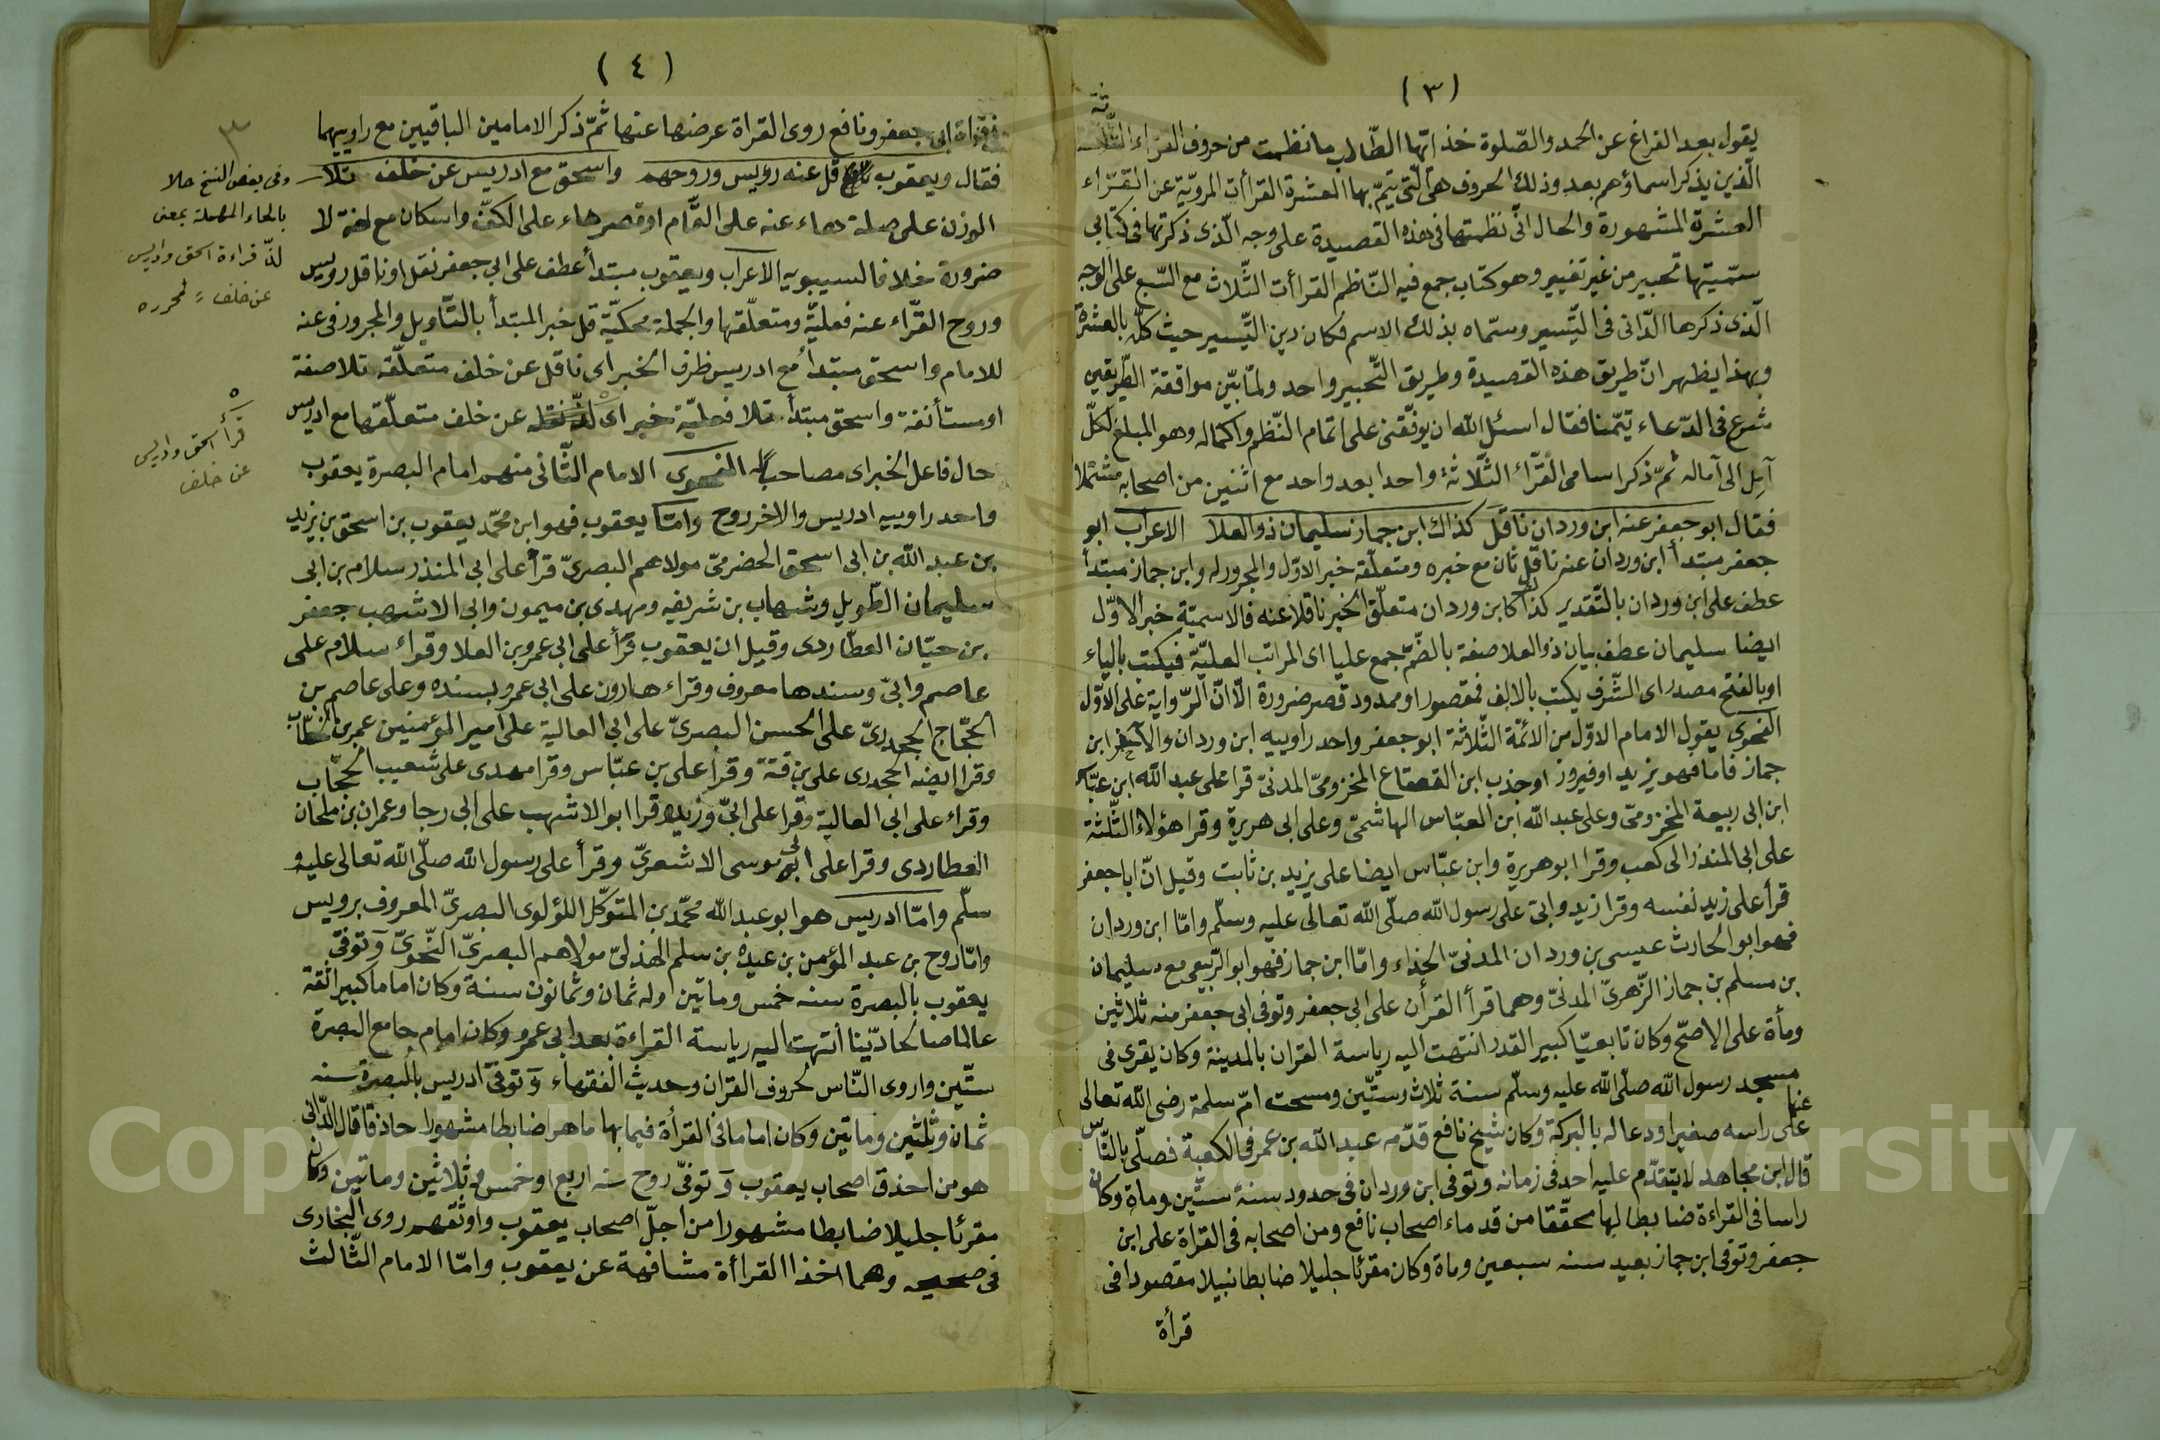 (٣)
يقول بعد الفراغ عن الحمد والصّلوة خذ ايّها الطّالب ما نظمت من حروف القراء الثّلاثة
الّذين يذكر اسماؤهم بعد وذلك الحروف هى الّتى يتمّ بها العشرة القراأت المرويّة عن القرّاء
العشرة المشهورة والحال انّى نظمتها فى هذه القصيدة على وجه الّذى ذكرتها فى كتابى
سمّيتها تحبير من غير تغيير وهو كتاب جمع فيه النّاظم القراأت الثّلاث مع السّبع على الوجه
الّذى ذكرها الدّانى فى التّيسير وسمّاه بذلك الاسم فكان زين التّيسير حيث كلّ بالعشرة
وبهذا يظهر انّ طريق هذه القصيدة وطريق التّحبير واحد ولمّا بيّن موافقة الطّريقين
شرع فى الدّعاء تيّمنا فقال اسئل الله ان يوفّقنى على اتمام النّظم واكماله وهو المبلغ لكلّ
آمل الى آماله ثمّ ذكر اسامى القرّاء الثّلاثة واحدا بعد واحد مع اثنين من اصحابه مشتملا
فقال ابو جعفر عنه ابن وردان ناقل كذاك ابن جماز سليمان ذو العلا الاعراب ابو
جعفر مبتدأ ابن وردان عنه ناقل ثان مع خبره ومتعلّقه خبر الاوّل والمجرور له وابن جماز مبتدأ
عطف على ابن وردان بالتّقدير كذاك كابن وردان متعلّق الخبر ناقلا عنه فالاسميّة خبر الاوّل
ايضا سليمان عطف بيان ذو العلا صفة بالضّمّ جمع عليا اى المراتب العليّة فيكتب بالياء
او بالفتح مصدر اى الشّرف يكتب بالالف فمقصور او ممدود قصر ضرورة الّا انّ الرّواية على الاوّل
الفحوى يقول الامام الاوّل من الائمّة الثّلاثة ابو جعفر واحد راوييه ابن وردان والآخر ابن
جماز فاما فهو يزيد او فيروز او جذب ابن القعقاع المخزومىّ المدنىّ قرا على عبد الله ابن عبّاس
ابن ابى ربيعة المخزومىّ وعلى عبد الله ابن العبّاس الهاشمىّ وعلى ابى هريرة وقرا هؤلاء الثّلثة
على ابى المنذر ابى كعب وقرا ابو هريرة وابن عبّاس ايضا على يزيد بن ثابت وقيل انّ ابا جعفر
قرأ على زيد نفسه وقرا زيد وابىّ على رسول الله صلّى الله تعالى عليه وسلّم وامّا ابن وردان
فهو ابو الحارث عيسى بن وردان المدنىّ الحذاء وامّا ابن جماز فهو ابو الرّبيع سليمان
بن مسلم بن جماز الزّهرىّ المدنىّ وهما قرأ القرأن على ابى جعفر وتوفى ابى جعفر سنه ثلاثين
ومأة على الاصحّ وكان تابعيّا كبير القدر انتهت اليه رياسة القران بالمدينة وكان يقرى فى
مسجد رسول الله صلّى الله عليه وسلّم سنة ثلاث وستّين ومسحت امّ سلمة رضى الله تعالى عنها
على راسه صغيرا ودعا له بالبركة وكان شيخ نافع قدّمه عبد الله بن عمر فى الكعبة فصلّى بالنّاس
قال ابن مجاهد لا يتقدّم عليه احد فى زمانه وتوفى ابن وردان فى حدود سنة ستّين وماة وكان
راسا فى القراءة ضابطا لها محقّقا من قدماء اصحاب نافع ومن اصحابه فى القراة على ابن
جعفر وتوفى ابن جماز بعيد سنه سبعين وماة وكان مقرئا جليلا ضابطا نبيلا مقصودا فى
قرأة
(٤)
قرأة ابى جعفر ونافع روى القراة عرضها عنها ثمّ ذكر الامامين الباقيين مع راوييهما
فقال ويعقوب قل عنه رويس وروحهم واسحق مع ادريس عن خلف تلا
الوزن على صلة هاء عنه على التّمام او قصرهاء على الكفّ واسكان مع لغة لا
ضرورة خلافا لسيبويه الاعراب ويعقوب مبتدأ عطف على ابى جعفر نقل او ناقل رويس
وروح القرّاء عنه فعليّة ومتعلّقها والجملة محكيّة قل خبر المبتدأ بالتّاويل والمجرور فى عنه
للامام واسحق مبتدأ مع ادريس ظرف الخبر اى ناقل عن خلف متعلّقه تلا صفة
او مستأنفة واسحق مبتدأ تلا فعليّة خبر اى عن خلف متعلّقها مع ادريس
حال فاعل الخبر اى مصاحبا له الفحوى الامام الثّانى منهم امام البصرة يعقوب
واحد راوييه ادريس والاخر روح وامّا يعقوب فهو ابن محمّد يعقوب بن اسحق بن يزيد
بن عبد الله بن ابى اسحق الحضرمىّ مولاهم البصرىّ قرأ على ابى المنذر سلام بن ابى
سليمان الطّويل وشهاب بن شريفه ومهدى بن ميمون وابى الاشهب جعفر
بن حيّان العطّاردى وقيل ان يعقوب قرأ على ابى عمرو بن العلا وقراء سلام على
عاصم وابىّ وسندها معروف وقراء هارون على ابى عمرو بسنده وعلى عاصم بن
الحجّاج الجحدرىّ على الحسن البصرىّ على ابى العالية على امير المؤمنين عمر بن الخطّاب
وقرا ايضه الجحدرى على بن قتة وقرا على بن عبّاس وقرا مهدى على شعيب الحجّاب
وقراء على ابى العالية وقرا على ابىّ وزيد وقرا ابو الاشهب على ابى رجا وعمران بن ملحان
العطاردى وقرا على ابى موسى الاشعرىّ وقرأ على رسول الله صلّى الله تعالى عليه و
سلّم وامّا ادريس هو ابو عبد الله محمّد بن المتوكّل اللؤلوى البصرىّ المعروف برويس
وامّا روح بن عبد المؤمن بن عبده بن سلم الهذلىّ مولاهم البصرىّ النّحوىّ وتوفّى
يعقوب بالبصرة سنه خمس وماتين وله ثمان وثمانون سنة وكان اماما كبيرا ثقة
عالما صالحا ديّنا انتهت اليه رياسة القراءة بعد ابى عمرو وكان امام جامع البصرة
ستّين واروى النّاس لحروف القران وحديث الفقهاء وتوفّى ادريس بالبصرة سنه
ثمان وثلثين وماتين وكان اماما فى القرأة فيما بها ماهرا ضابطا مشهورا حاذقا قال الدّانى
هو من احذق اصحاب يعقوب وتوفّى روح سنه اربع او خمس وثلاثين وماتين وكان
مقرئا جليلا ضابطا مشهورا من اجلّ اصحاب يعقوب واوثقهم روى البخارى
فى صحيحه وهما اخذا القراأة مشافهة عن يعقوب وامّا الامام الثّالث
٣
وفى بعض النسخ حلا
بالحاء المهملة بمعنى
لذّ قراءة اسحق وادريس
عن خلف لمحرره
قرأ اسحق وادريس
عن خلف
Copyright © King Saud University